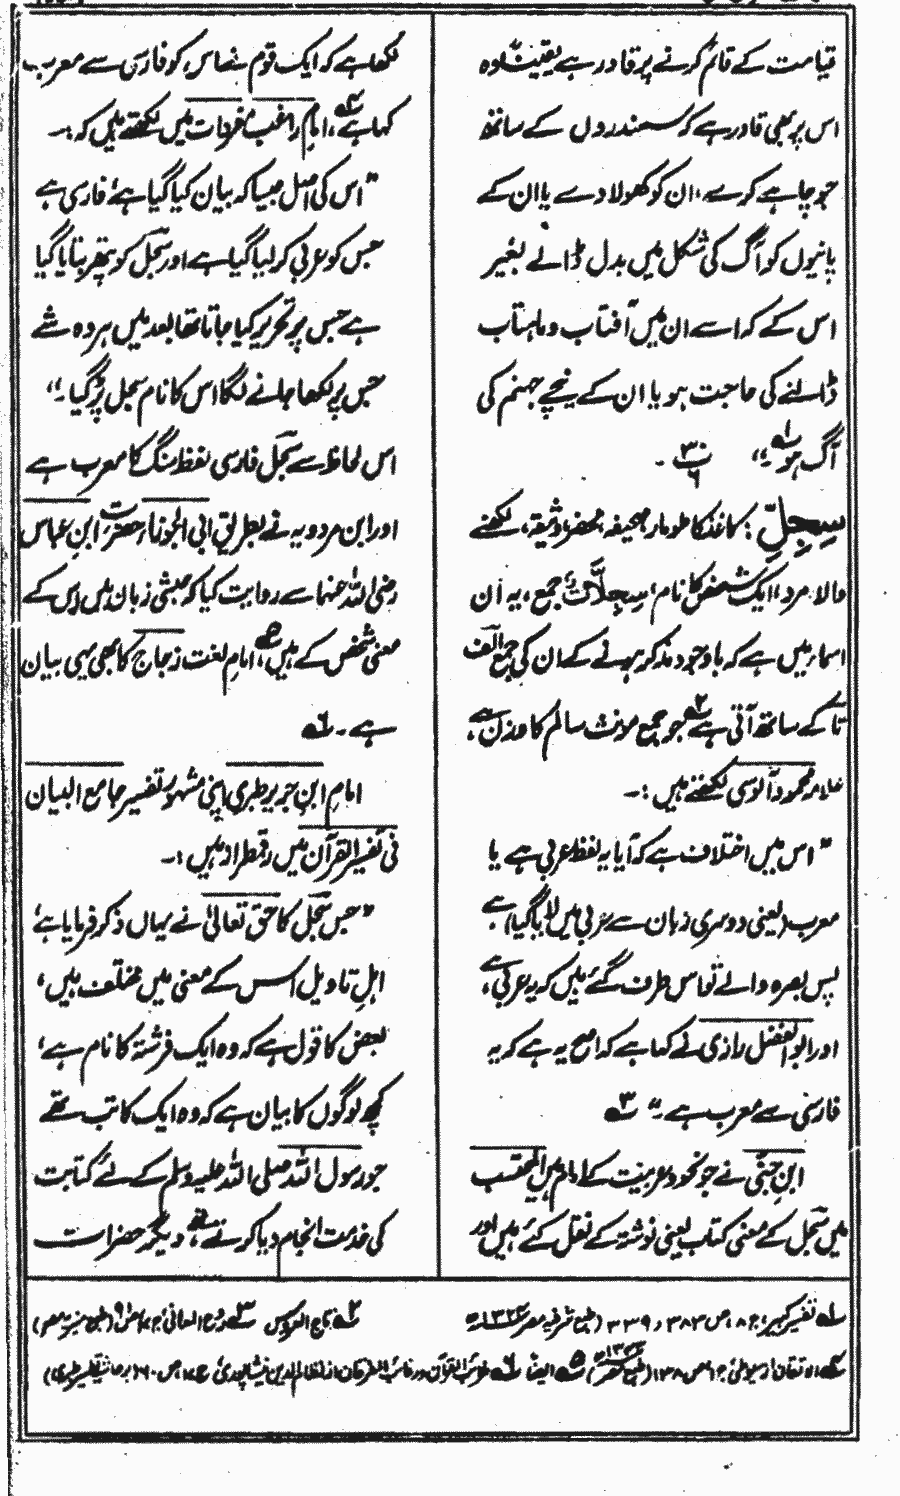 قیامت کے قائم کرنے پر قادر ہے یقیناً وہ
اس پر بھی قادر ہے کہ سمندروں کے ساتھ
جو چاہے کرے، ان کو کھولا دے یا ان کے
پانیوں کو آگ کی شکل میں بدل ڈالے بغیر
اس کے کہ اسے ان میں آفتاب و ماہتاب
ڈالنے کی حاجت ہو یا ان کے نیچے جہنم کی
آگ ہو ۔"
سِجِلّ : کاغذ کا طومار، صحیفہ، محضر، وثیقہ، لکھنے
والا مرد، ایک شخص کا نام، سِجِلَّاتٌ جمع، یہ اُن
اسماء میں ہے کہ باوجود مذکر ہونے کے ان کی جمع الف
تا کے ساتھ آتی ہے جو جمع مؤنث سالم کا وزن ہے،
علامہ محمود آلوسی لکھتے ہیں :۔
"اس میں اختلاف ہے کہ آیا یہ لفظ عربی ہے یا
معرب (یعنی دوسری زبان سے عربی میں لایا گیا) ہے
پس بصرہ والے تو اس طرف گئے ہیں کہ یہ عربی ہے،
اور ابو الفضل رازی نے کہا ہے کہ اصح یہ ہے کہ یہ
فارسی سے معرب ہے ۔" ۳؎
ابن جنی نے جو نحو و عربیت کے امام ہیں المحتسب
میں سجل کے معنی کتاب یعنی نوشتہ کے نقل کئے ہیں اور
لکھا ہے کہ ایک قوم نے اس کو فارسی سے معرب
کہا ہے ۴؎، امام راغب مفردات میں لکھتے ہیں کہ :۔
"اس کی اصل جیسا کہ بیان کیا گیا ہے فارسی ہے
جس کو عربی کر لیا گیا ہے اور سجل کو پتھر بتایا گیا
ہے جس پر تحریر کیا جاتا تھا بعد میں ہر وہ شے
جس پر لکھا جانے لگا اس کا نام سجل پڑ گیا ۔"
اس لحاظ سے سجل فارسی لفظ سنگ کا معرب ہے
اور ابن مردویہ نے بطریق ابی الجوزاء حضرت ابن عباس
رضی اللہ عنہما سے روایت کیا کہ حبشی زبان میں اس کے
معنی شخص کے ہیں ۵؎، امام لغت زجاج کا بھی یہی بیان
ہے ۔ ۶؎
امام ابن جریر طبری اپنی مشہور تفسیر جامع البیان
فی تفسیر القرآن میں رقمطراز ہیں :۔
"جس سجل کا حق تعالیٰ نے یہاں ذکر فرمایا ہے
اہل تاویل اس کے معنی میں مختلف ہیں،
بعض کا قول ہے کہ وہ ایک فرشتہ کا نام ہے،
کچھ لوگوں کا بیان ہے کہ وہ ایک کاتب تھے
جو رسول اللہ صلی اللہ علیہ وسلم کے لئے کتابت
کی خدمت انجام دیا کرتے تھے، دیگر حضرات
۱؎ تفسیر کبیر، ج ۸، ص ۳۸۳ و ۳۳۹ (طبع شرفیہ مصر ۱۳۲۴ھ ۲؎ تاج العروس ۳؎ روح المعانی، ج ۱۷ ص ۹۱ (طبع منیریہ مصر)
۴؎ اتقان از سیوطی ج ۱ ص ۱۳۸ (طبع مصر) ۵؎ ایضاً ۶؎ غرائب القرآن ورغائب الفرقان از نظام الدین نیشاپوری، ج ۱۷، ص ۶۰ (برحاشیہ تفسیر طبری)